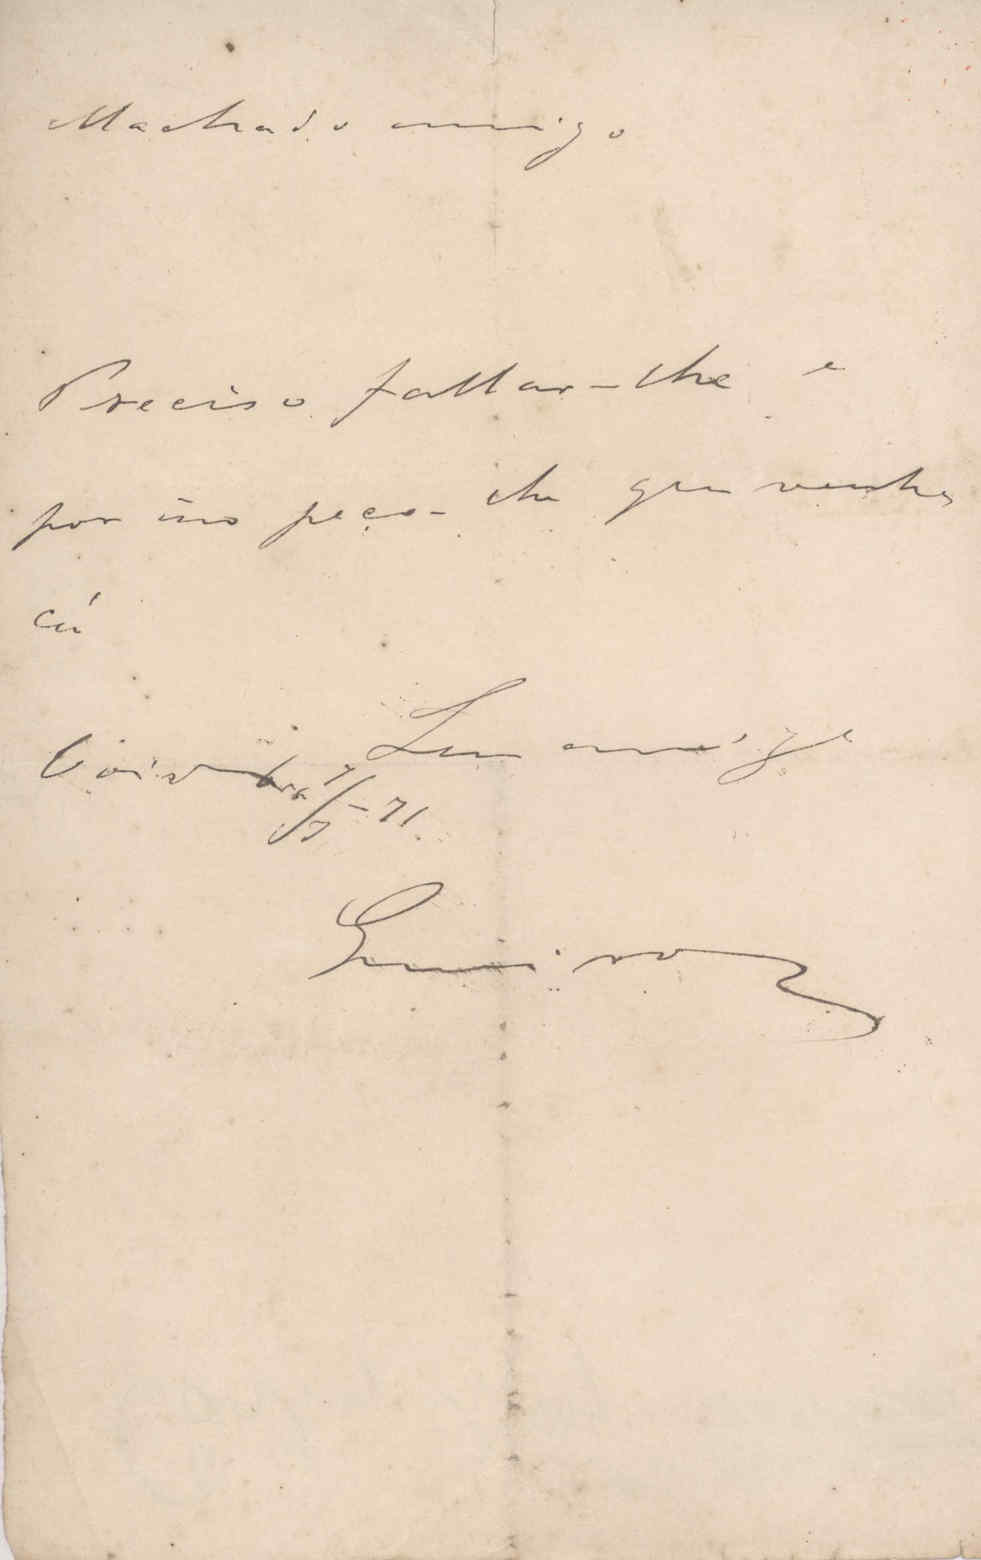 Machado amigo
Preciso fallar-lhe e
por isso peço-lhe que venha
cá
Seu amigo
7/7-71
Queiroz